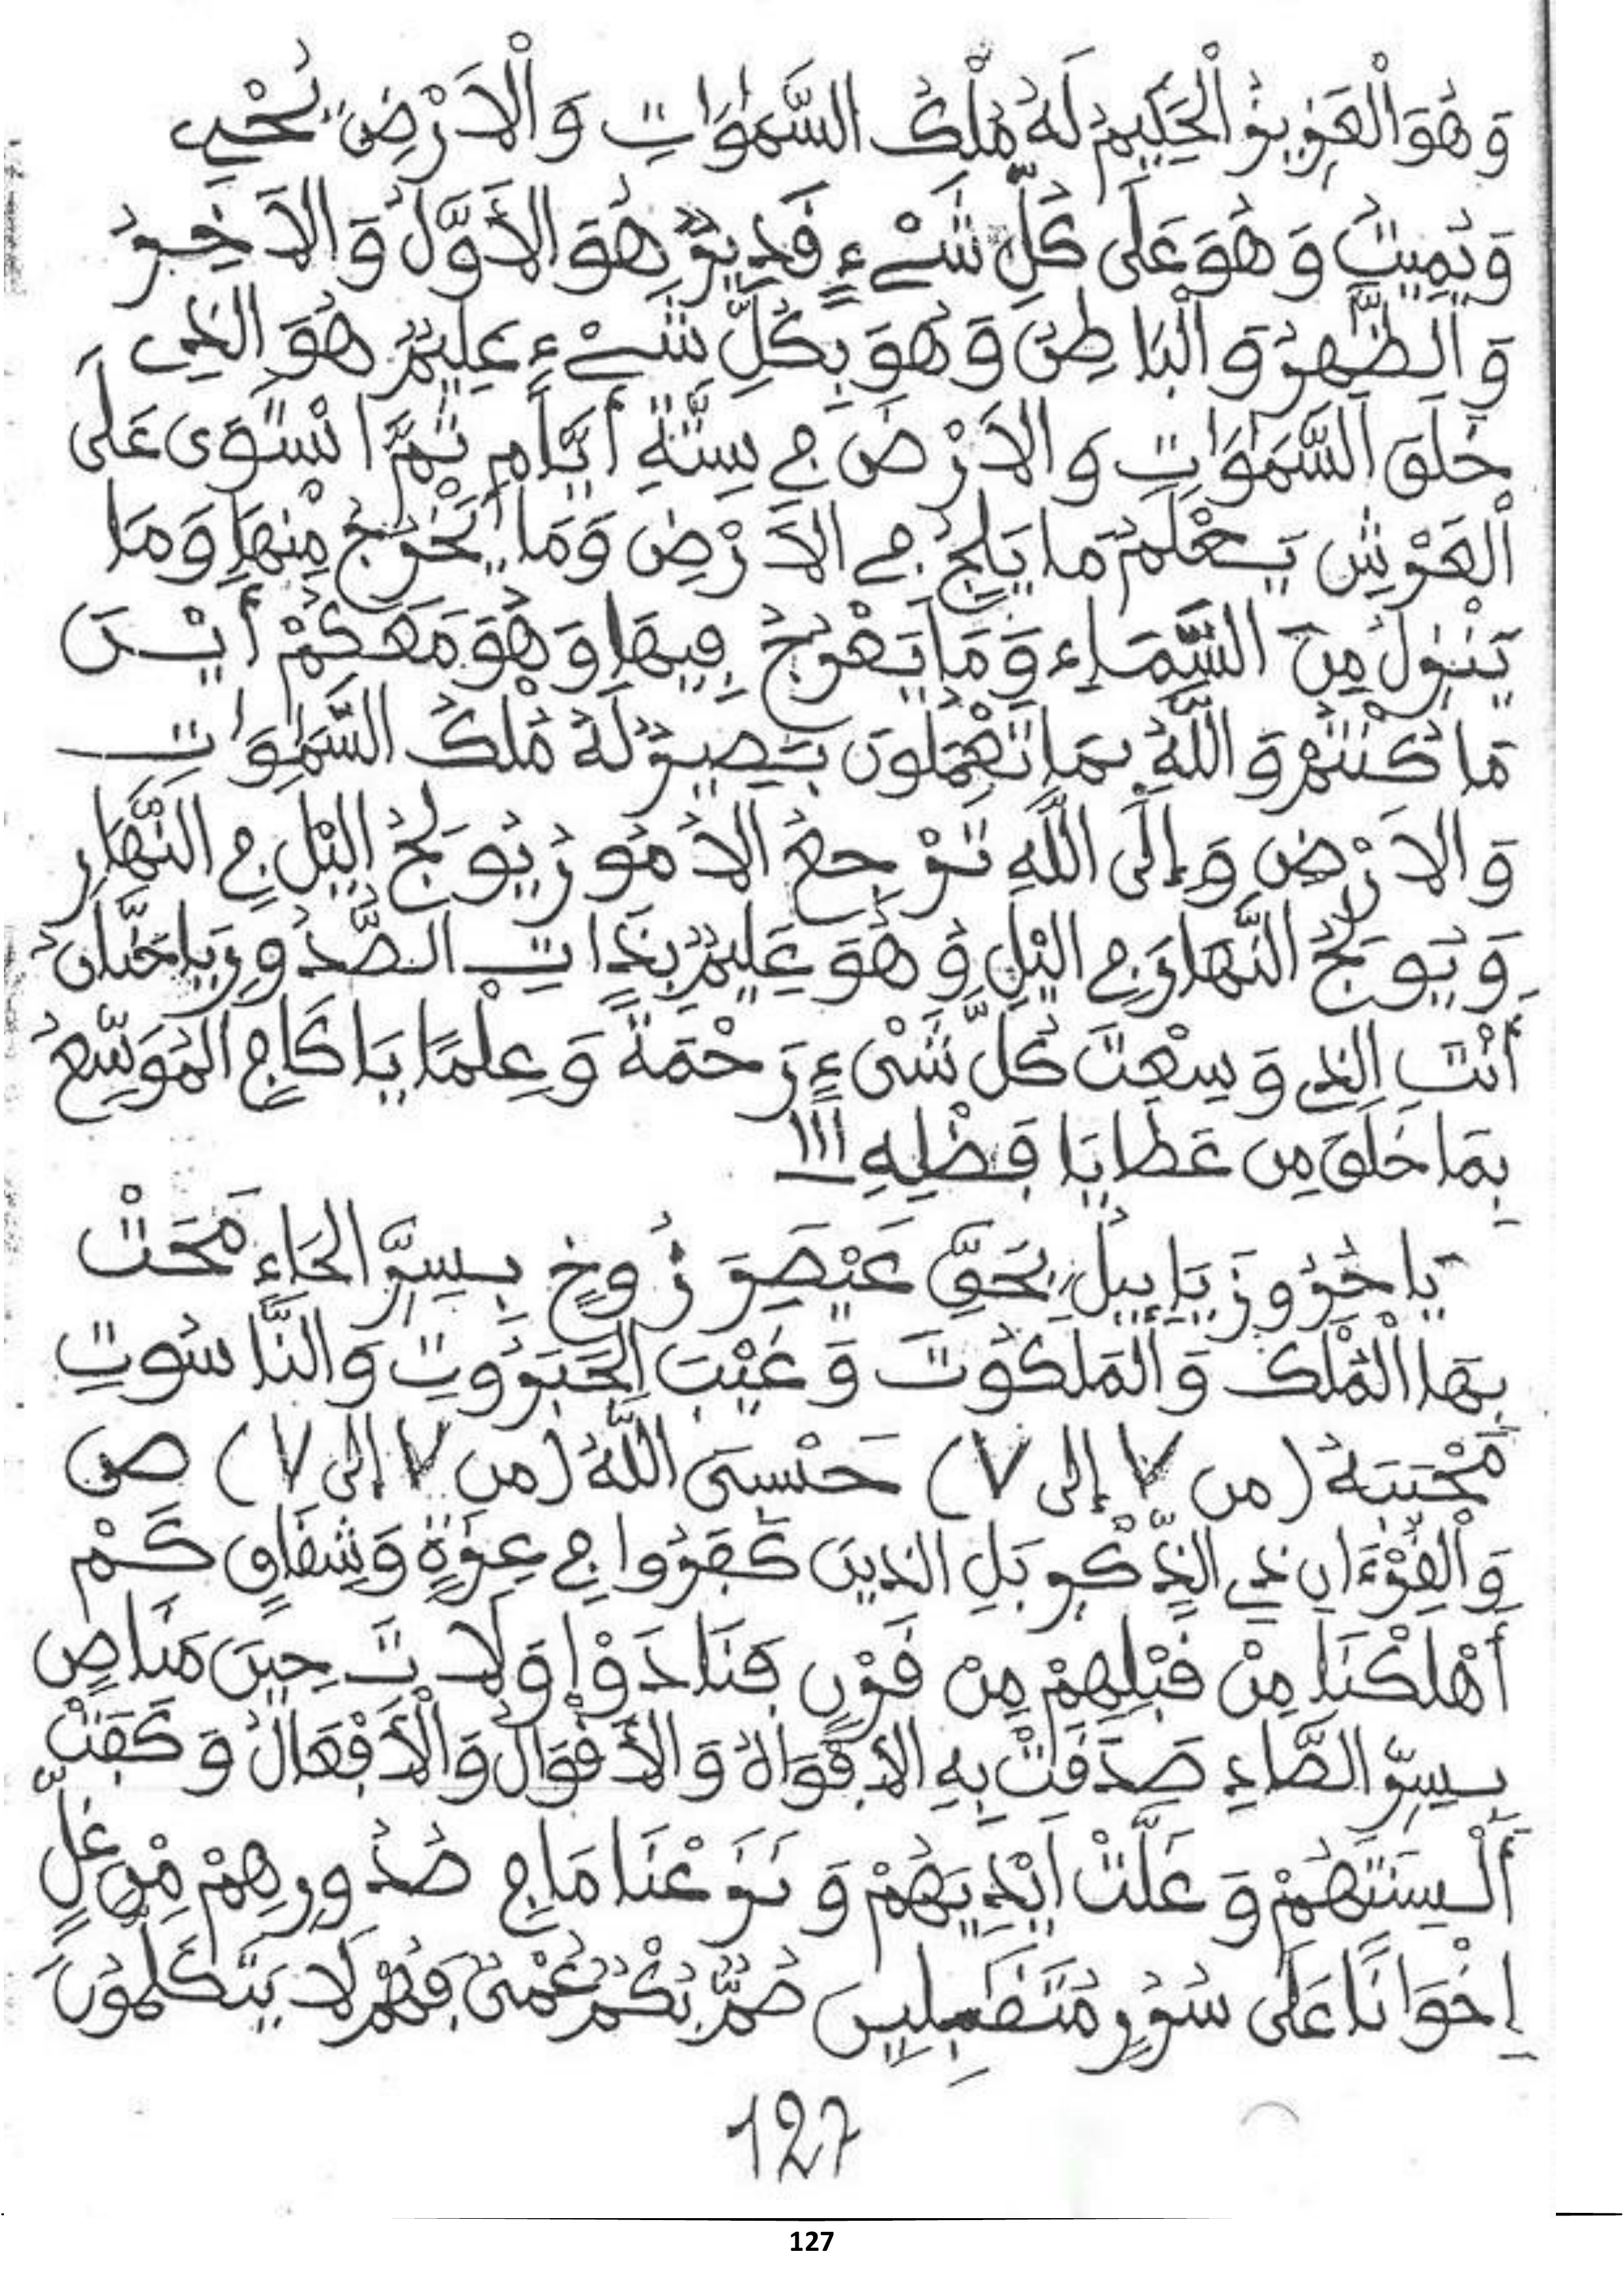 وَهُوَ الْعَزِيزُ الْحَكِيمُ لَهُ مُلْكُ السَّمٰوَاتِ وَالْاَرْضِ يُحْيِي
وَيُمِيتُ وَهُوَ عَلَى كُلِّ شَيْءٍ قَدِيرٌ هُوَ الاَوَّلُ وَالاَخِرُ
وَالظَّهِرُ وَالْبَاطِنُ وَهُوَ بِكُلِّ شَيْءٍ عَلِيمٌ هُوَ الذِي
خَلَقَ السَّمَوَاتِ وَالاَرْضَ فِي سِتَّةِ أَيَّامٍ ثُمَّ اسْتَوَى عَلَى
الْعَرْشِ يَعْلَمُ مَا يَلِجُ فِي الاَرْضِ وَمَا يَخْرُجُ مِنْهَا وَمَا
يَنزِلُ مِنَ السَّمَاءِ وَمَا يَعْرُجُ فِيهَا وَهُوَ مَعَكُمْ أَيْنَ
مَا كُنْتُمْ وَاللَّهُ بِمَا تَعْمَلُونَ بَصِيرٌ لَهُ مُلْكُ السَّمَوَاتِ
وَالاَرْضِ وَإِلَى اللَّهِ تُرْجَعُ الاُمُورُ يُولِجُ اليْلَ فِي النَّهَارِ
وَيُولِجُ النَّهَارَ فِي اليْلِ وَهُوَ عَلِيمٌ بِذَاتِ الصُّدُورِ يَاحَنَّانُ
أَنْتَ الذِي وَسِعْتَ كُلَّ شَيْءٍ رَحْمَةً وَعِلْمًا يَا كَافِي الْمُوَسِّعُ
بِمَا خَلَقَ مِن عَطَايَا فَضْلِهِ ااا
يَا حَرُوزَيَائِيلُ بِحَقِّ عَيْصَرَ زُوخٍ بِسِرِّ الحَاءِ مَحَتْ
بِهَا الْمُلْكَ وَالْمَلَكُوتَ وَغَيْبَ الْجَبَرُوتِ وَالنَّاسُوتِ
مَحْبَبَةُ (من ٧ إلى ٧) حَسْبِيَ اللَّهُ (من ٧ إلى ٧) ص
وَالْقُرْءَانِ ذِي الذِّكْرِ بَلِ الذِينَ كَفَرُوا فِي عِزَّةٍ وَشِقَاقٍ كَمْ
أَهْلَكْنَا مِنْ قَبْلِهِمْ مِنْ قَرْنٍ فَنَادَوْا وَلَاتَ حِينَ مَنَاصٍ
بِسِرِّ الصَّادِ صَدَقَتْ بِهِ الاَفْوَاهُ وَالأَقْوَالُ وَالْاَفْعَالُ وَكَفَتْ
أَلْسِنَتَهُمْ وَغَلَّتْ اَيْدِيَهُمْ وَنَزَعْنَا مَا فِي صُدُورِهِمْ مِنْ غِلٍّ
اِخْوَانًا عَلَى سُرُرٍ مُتَقَابِلِينَ صُمٌّ بُكْمٌ عُمْيٌ فَهُمْ لَا يَتَكَلَّمُونَ
127
127